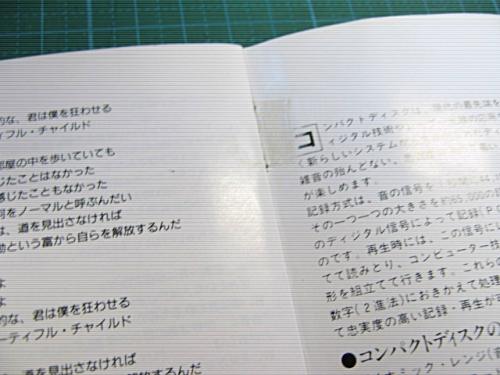 的な、君は僕を狂わせる
ティフル・チャイルド
部屋の中を歩いていても
じたことはなかった
感じたこともなかった
何をノーマルと呼ぶんだい
は、道を見出さなければ
動という富から自らを解放するんだ
よ
よ
的な、君は僕を狂わせる
ーティフル・チャイルド
道を見出さなければ
コンパクトディスクは、現代の最先端
ィジタル技術や
く新らしいシステム
雑音の殆んどない、
が楽しめます。
記録方式は、音の信号を1秒間に44,1
その一つ一つの大きさを約65,000の
のディジタル信号によって記録(PC
のです。再生時には、この信号に
てて読みとり、コンピューター技
形を組立てて行きます。これらの
数字(2進法)におきかえて処理
て忠実度の高い記録・再生が
●コンパクトディスクの
ナミック・レンジ(音